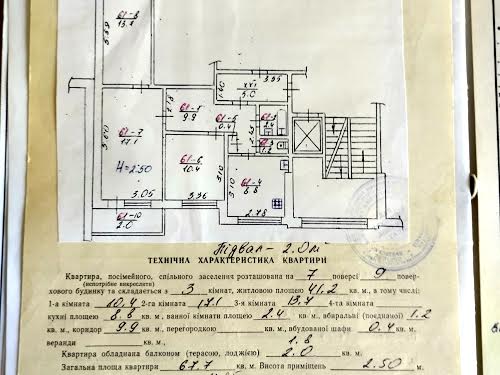 61-8
13.7
5.59
3.55
61-1
5.0
1.40
2.18
61-5
9.9
61-6
0.4
2.65
61-2
2.4
61-3
1.2
61-7
17.1
5.60
H=2.50
61-6
10.4
3.10
3.10
61-4
8.8
3.05
3.36
2.78
61-10
2.0
Підвал - 2.0 м
ТЕХНІЧНА ХАРАКТЕРИСТИКА КВАРТИРИ
Квартира, посімейного, спільного заселення розташована на 7 поверсі 9 повер-
(непотрібне викреслити)
хового будинку та складається з 3 кімнат, житловою площею 41.2 кв. м., в тому числі:
1-а кімната 10,4 2-га кімната 17.1 3-я кімната 13.7 4-та кімната
кухні площею 8.8 кв. м., ванної кімнати площею 2.4 кв. м., вбиральні (поєднаної) 1.2
кв. м., коридор 9.9 кв. м., перегородкою кв. м., вбудованої шафи 0.4 кв. м.
веранди кв. м., 1.8
Квартира обладнана балконом (терасою, лоджією) 2.0 кв. м.
Загальна площа квартири 67.7 кв. м. Висота приміщень 2.50 м.